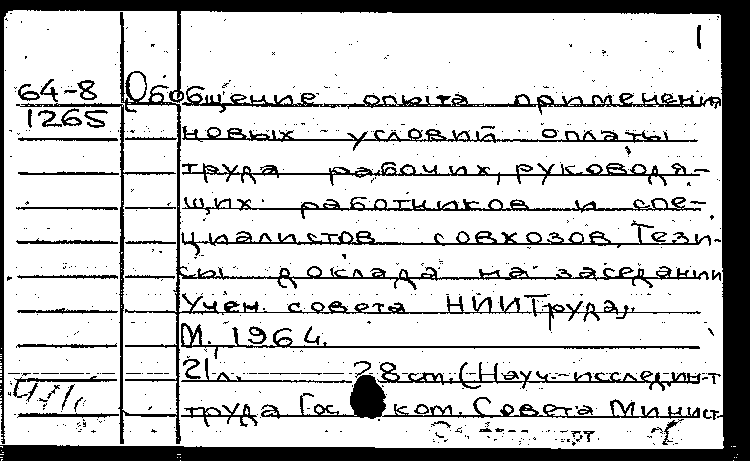 1
64-8 Обобщение опыта применения
1265
новых условий оплаты
труда рабочих, руководя-
щих работников и спе-
циалистов совхозов. Тези-
сы доклада на заседании
Учен. совета НИИТруда.
М. 1964.
21л. 28 cm. (Науч.-исслед. ин-т
труда Гос. ком. Совета Минист-